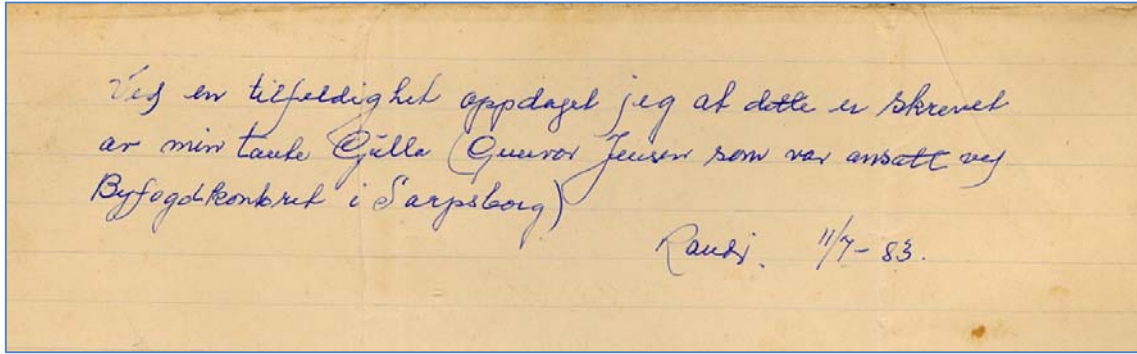 Ved en tilfeldighet oppdaget jeg at dette er skrevet
av min tante Gulla (Gunvor Jensen som var ansatt ved
Byfogdkontoret i Sarpsborg)
Randi. 11/7-83.